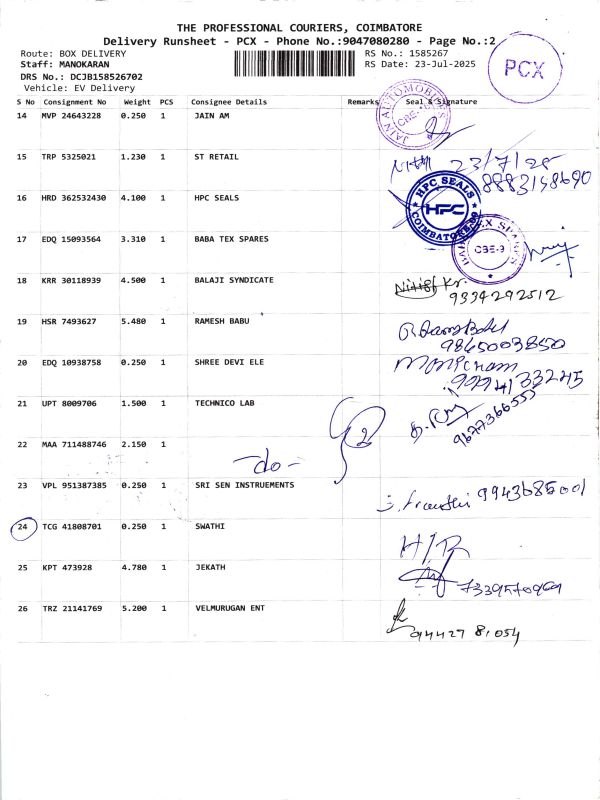 THE PROFESSIONAL COURIERS, COIMBATORE
Delivery Runsheet - PCX - Phone No.:9047080280 - Page No.:2
Route: BOX DELIVERY
RS No.: 1585267
Staff: MANOKARAN
RS Date: 23-Jul-2025
DRS No.: DCJB158526702
Vehicle: EV Delivery
PCX
S No Consignment No Weight PCS Consignee Details Remarks Seal & Signature
14 MVP 24643228 0.250 1 JAIN AM
JAIN AUTOMOBILES
15 TRP 5325021 1.230 1 ST RETAIL
23/7/25
8883148690
16 HRD 362532430 4.100 1 HPC SEALS
HPC SEALS
HPC
COIMBATORE
17 EDQ 15093564 3.310 1 BABA TEX SPARES
CBE-9
18 KRR 30118939 4.500 1 BALAJI SYNDICATE
Nitish Kr.
9334292512
19 HSR 7493627 5.480 1 RAMESH BABU
9865003850
20 EDQ 10938758 0.250 1 SHREE DEVI ELE
21 UPT 8009706 1.500 1 TECHNICO LAB
9677366555
2
22 MAA 711488746 2.150 1
-do-
23 VPL 951387385 0.250 1 SRI SEN INSTRUEMENTS
9943685001
24 TCG 41808701 0.250 1 SWATHI
H/R
25 KPT 473928 4.780 1 JEKATH
7339570969
26 TRZ 21141769 5.200 1 VELMURUGAN ENT
94427 81054